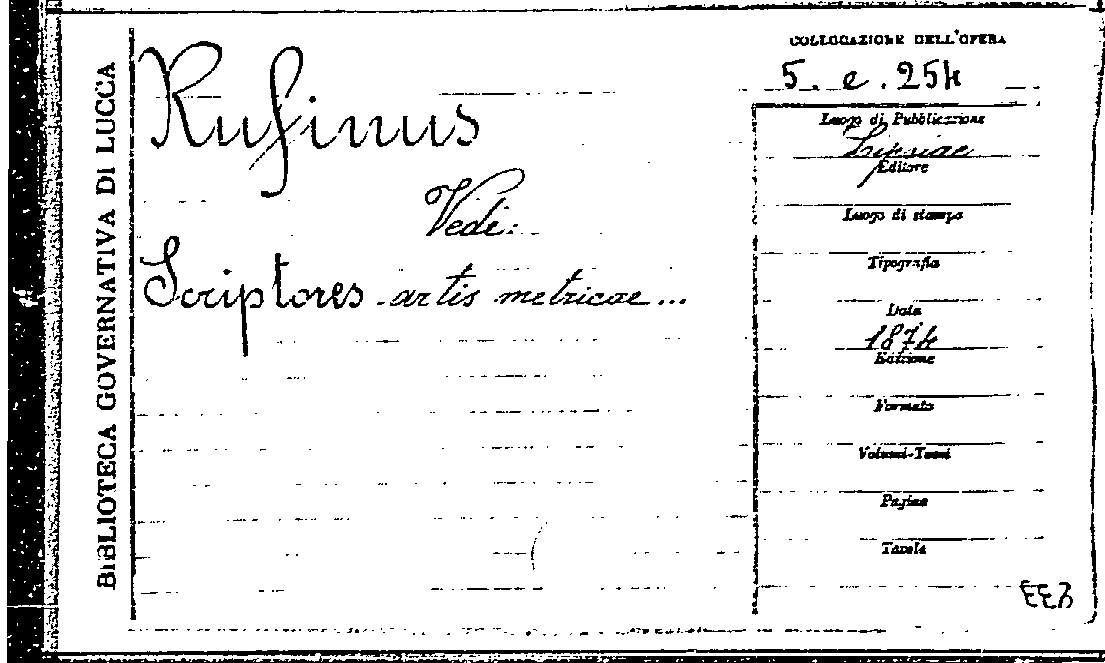 BIBLIOTECA GOVERNATIVA DI LUCCA
Rufinus
Vedi:
Scriptores artis metricae...
COLLOCAZIONE DELL'OPERA
5. e. 254
Luogo di Pubblicazione
Lipsiae
Editore
Luogo di stampa
Tipografia
Data
1874
Edizione
Formato
Volumi-Tomi
Pagine
Tavole